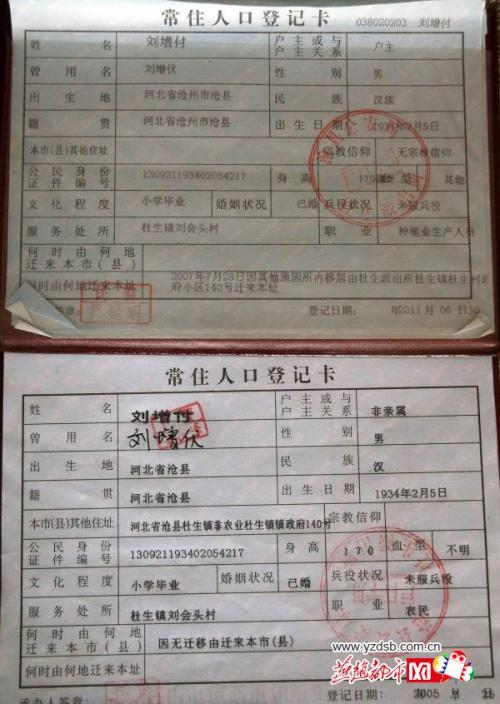 常住人口登记卡
038020203 刘增付
姓名 刘增付 户主或与户主关系 户主
曾用名 刘增伏 性别 男
出生地 河北省沧州市沧县 民族 汉族
籍贯 河北省沧州市沧县 出生日期 1934年2月5日
本市(县)其他住址 宗教信仰 无宗教信仰
公民身份证件编号 130921193402054217 身高 170 血型 其他
文化程度 小学毕业 婚姻状况 已婚 兵役状况 未服兵役
服务处所 杜生镇刘会头村 职业 种植业生产人员
何时由何地迁来本市(县)
何时由何地迁来本址 2007年7月28日因其他原因所内移居由杜生派出所杜生镇杜生村政府小区140号迁来本址
签章: 登记日期: 2011年06月30
常住人口登记卡
姓名 刘增付 户主或与户主关系 非亲属
曾用名 刘增伏 性别 男
出生地 河北省沧县 民族 汉
籍贯 河北省沧县 出生日期 1934年2月5日
本市(县)其他住址 河北省沧县杜生镇非农业杜生镇镇政府140号 宗教信仰
公民身份证件编号 130921193402054217 身高 170 血型 不明
文化程度 小学毕业 婚姻状况 已婚 兵役状况 未服兵役
服务处所 杜生镇刘会头村 职业 农民
何时由何地迁来本市(县) 因无迁移由迁来本市(县)
何时由何地迁来本址
承办人签章: 登记日期: 2005年月日
www.yzdsb.com.cn
燕赵都市网